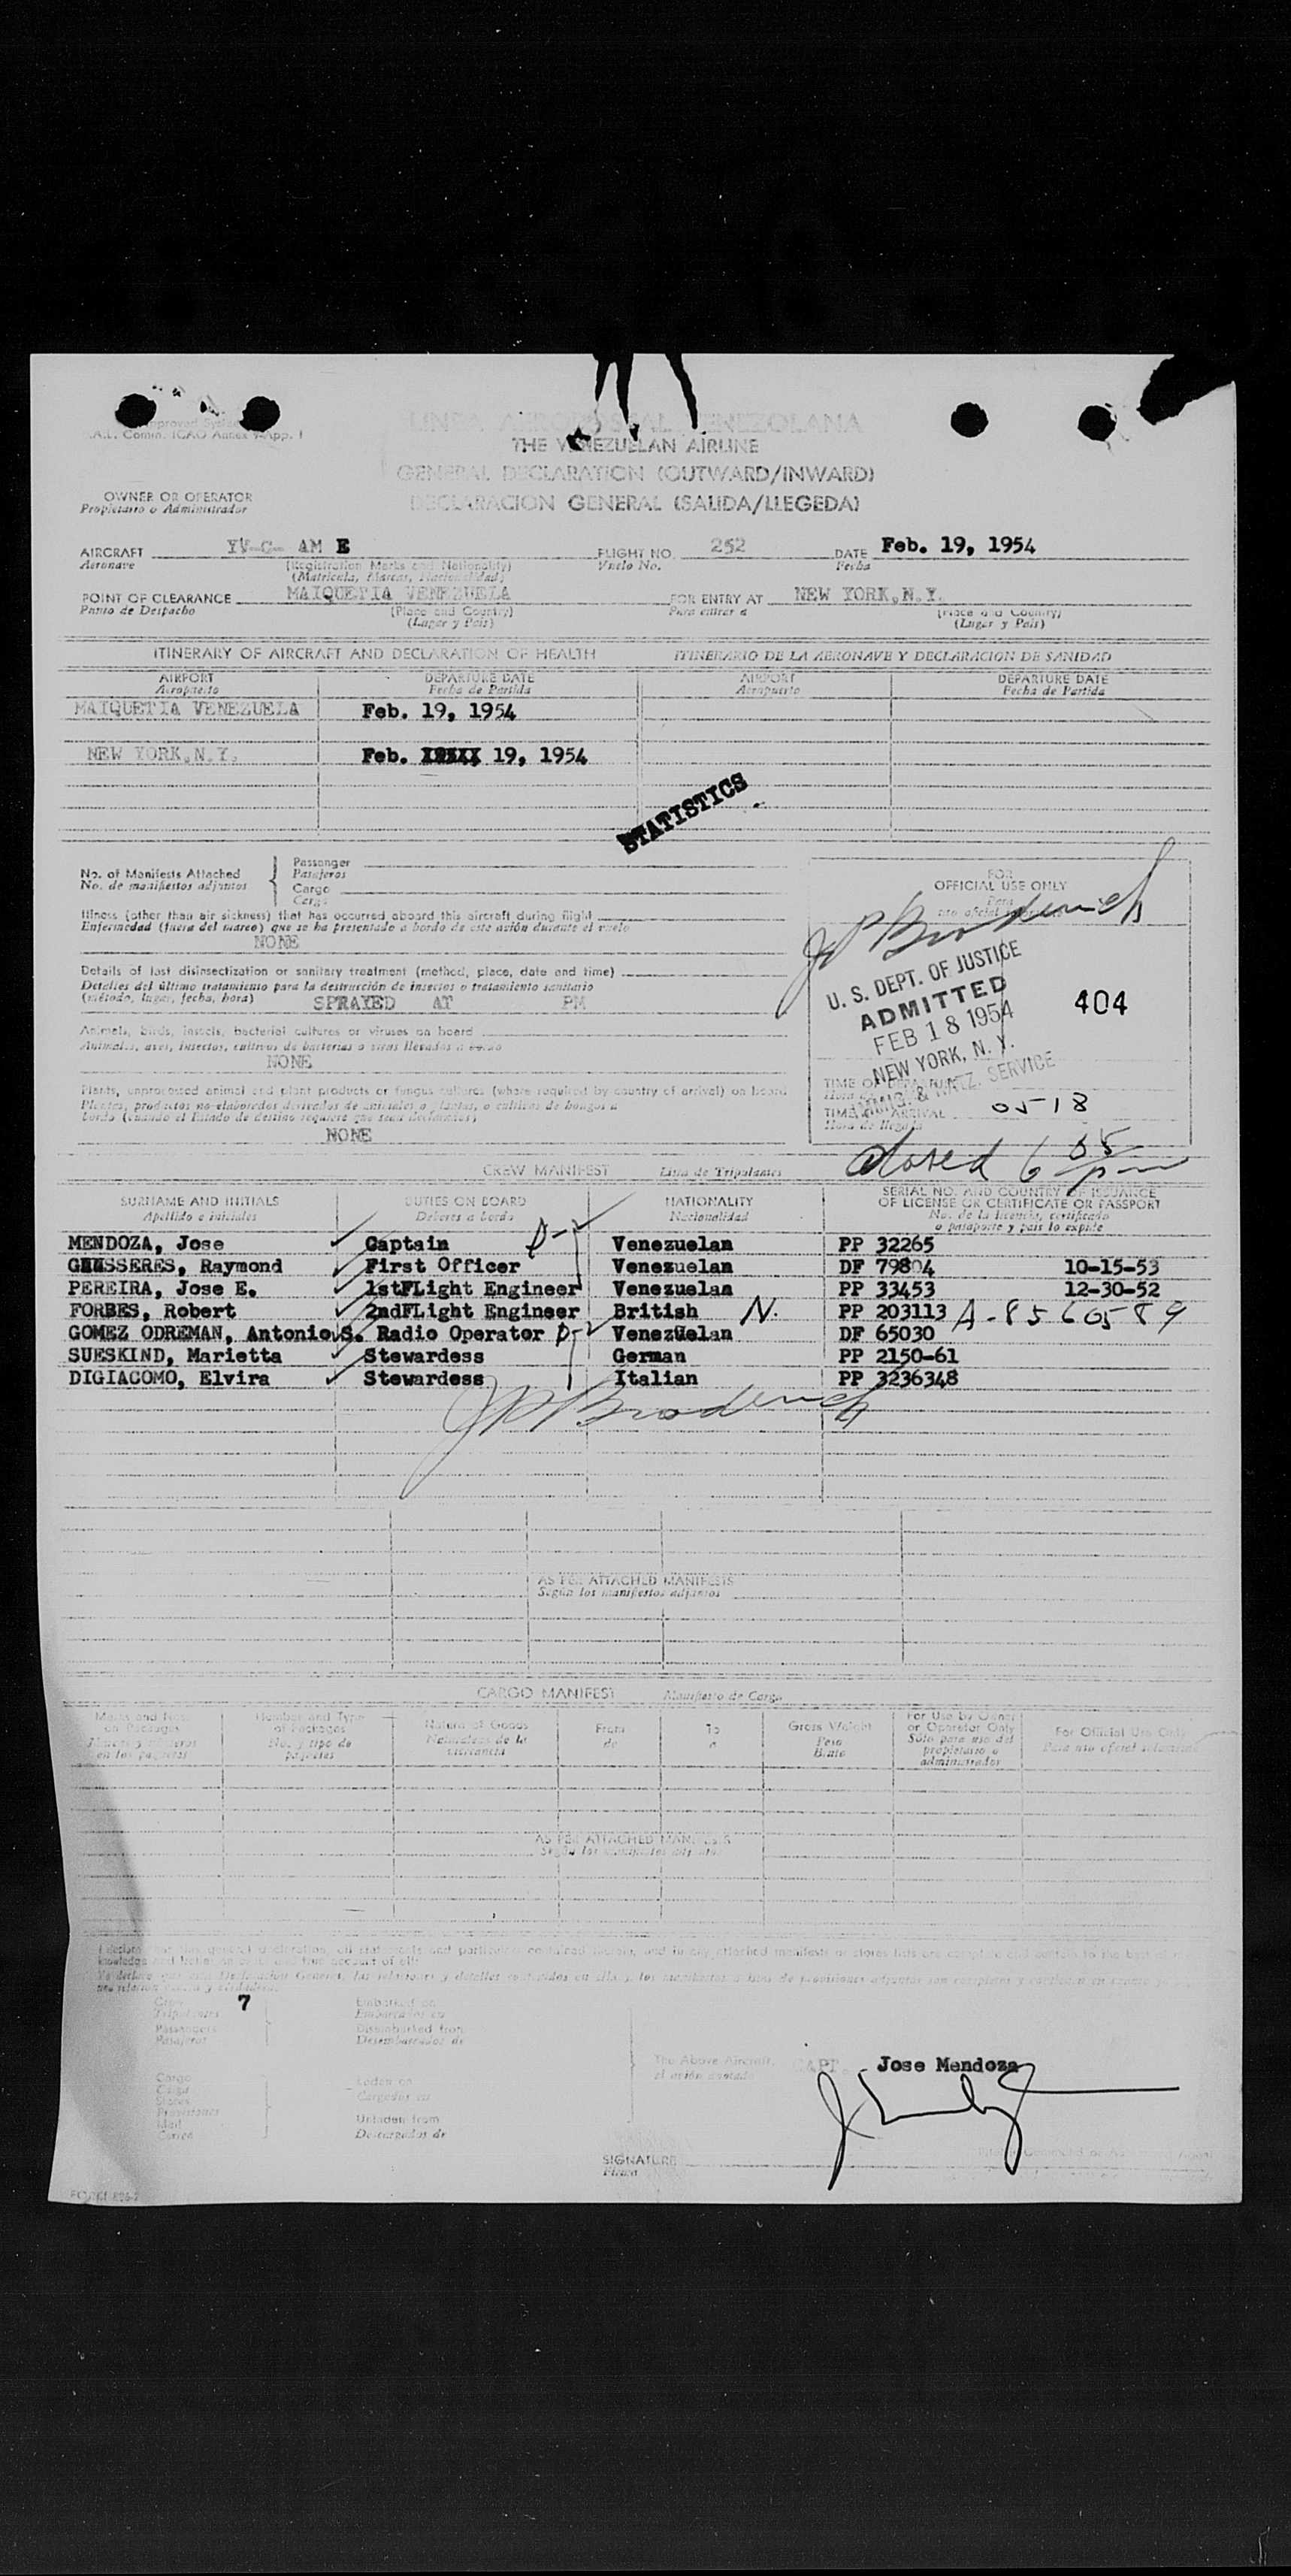 Approved System
C.A.L. Comm. ICAO Annex 9-App. 1
LINEA AEROPOSTAL VENEZOLANA
THE VENEZUELAN AIRLINE
GENERAL DECLARATION (OUTWARD/INWARD)
DECLARACION GENERAL (SALIDA/LLEGEDA)
OWNER OR OPERATOR
Propietario o Administrador
AIRCRAFT YV-C- AM E FLIGHT NO. 252 DATE Feb. 19, 1954
Aeronave (Registration Marks and Nationality) Vuelo No. Fecha
(Matricula, Marcas, Nacionalidad)
POINT OF CLEARANCE MAIQUETIA VENEZUELA FOR ENTRY AT NEW YORK,N.Y.
Punto de Despacho (Place and Country) Para entrar a (Place and Country)
(Lugar y Pais) (Lugar y Pais)
ITINERARY OF AIRCRAFT AND DECLARATION OF HEALTH ITINERARIO DE LA AERONAVE Y DECLARACION DE SANIDAD
AIRPORT DEPARTURE DATE AIRPORT DEPARTURE DATE
Aeropuerto Fecha de Partida Aeropuerto Fecha de Partida
MAIQUETIA VENEZUELA Feb. 19, 1954
NEW YORK,N.Y. Feb. 19, 1954
STATISTICS
No. of Manifests Attached
No. de manifiestos adjuntos
Passenger
Pasajeros
Cargo
Carga
FOR
OFFICIAL USE ONLY
Para
uso oficial
JP Broderick
Illness (other than air sickness) that has occurred aboard this aircraft during flight
Enfermedad (fuera del mareo) que se ha presentado a bordo de este avión durante el vuelo
NONE
Details of last disinsectization or sanitary treatment (method, place, date and time)
Detalles del último tratamiento para la destrucción de insectos o tratamiento sanitario
(método, lugar, fecha, hora) SPRAYED AT PM
U. S. DEPT. OF JUSTICE
ADMITTED
FEB 18 1954
NEW YORK, N. Y.
IMMIG. & NATZ. SERVICE
404
Animals, birds, insects, bacterial cultures or viruses on board
Animales, aves, insectos, cultivos de bacterias o virus llevados a bordo
NONE
Plants, unprocessed animal and plant products or fungus cultures (where required by country of arrival) on board
Plantas, productos no elaborados derivados de animales o plantas, o cultivos de hongos a
bordo (cuando el Estado de destino requiere que sean declarados)
NONE
TIME OF DEPARTURE
TIME OF ARRIVAL 0518
Hora de llegada
closed 6 05 pm
CREW MANIFEST Lista de Tripulantes
SURNAME AND INITIALS DUTIES ON BOARD NATIONALITY SERIAL NO. AND COUNTRY OF ISSUANCE
OF LICENSE OR CERTIFICATE OR PASSPORT
Apellido e iniciales Deberes a bordo Nacionalidad No. de la licencia, certificado
o pasaporte y pais lo expide
MENDOZA, Jose Captain D-2 Venezuelan PP 32265
RAYMOND First Officer Venezuelan DF 79804 10-15-53
PEREIRA, Jose E. 1stFLight Engineer Venezuelan PP 33453 12-30-52
FORBES, Robert 2ndFLight Engineer British N. PP 203113 A-8560589
GOMEZ ODREMAN, Antonio S. Radio Operator D-2 Venezuelan DF 65030
SUESKIND, Marietta Stewardess German PP 2150-61
DIGIACOMO, Elvira Stewardess Italian PP 3236348
JP Broderick
AS PER ATTACHED MANIFESTS
Según los manifiestos adjuntos
CARGO MANIFEST Manifiesto de Carga
Marks and Nos. on Packages
Number and Type of Packages
No. y tipo de paquetes
Nature of Goods
Naturaleza de la
From
de
To
a
Gross Weight
Peso
Bruto
For Use by Owner
or Operator Only
Sólo para uso del
propietario o
administrador
For Official Use Only
Para uso oficial solamente
AS PER ATTACHED MANIFESTS
Según los manifiestos adjuntos
Crew 7
Tripulantes
Passengers
Pasajeros
Cargo
Carga
Stores
Provisiones
Mail
Correo
Embarked on
Embarcados en
Disembarked from
Desembarcados de
Laden on
Cargados en
Unladen from
Descargados de
The Above Aircraft.
el avión anotado
CAPT. Jose Mendoza
SIGNATURE
Firma